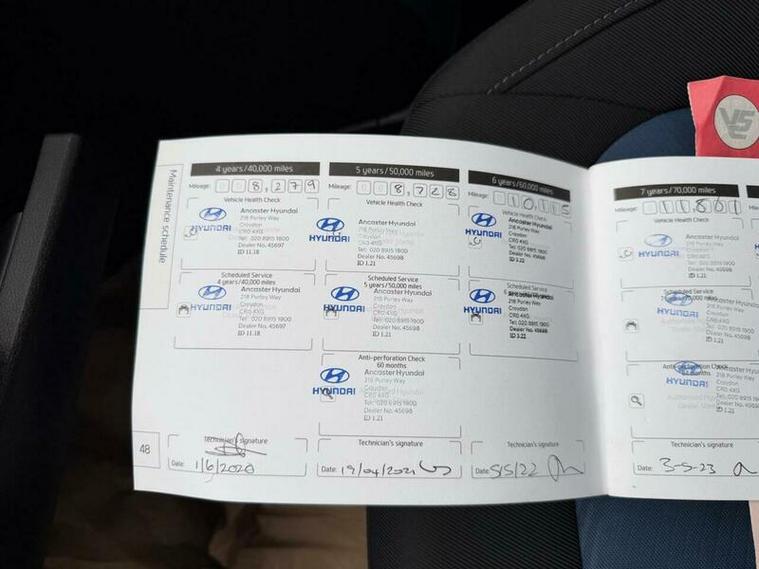 Maintenance schedule
4 years/40,000 miles
Mileage: 8,279
Vehicle Health Check
HYUNDAI
Ancaster Hyundai
218 Purley Way
Croydon
CR0 4XG
Tel: 020 8915 1800
Dealer No. 45697
ID 11.18
Scheduled Service
4 years/40,000 miles
HYUNDAI
Ancaster Hyundai
218 Purley Way
Croydon
CR0 4XG
Tel: 020 8915 1800
Dealer No. 45697
ID 11.18
Technician's signature
Date: 1/6/2020
48
5 years/50,000 miles
Mileage: 8,728
Vehicle Health Check
HYUNDAI
Ancaster Hyundai
218 Purley Way
Croydon
CR0 4XG
Tel: 020 8915 1800
Dealer No. 45698
ID 1.21
Scheduled Service
5 years/50,000 miles
HYUNDAI
Ancaster Hyundai
218 Purley Way
Croydon
CR0 4XG
Tel: 020 8915 1800
Dealer No. 45698
ID 1.21
Anti-perforation Check
60 months
HYUNDAI
Ancaster Hyundai
218 Purley Way
Croydon
CR0 4XG
Tel: 020 8915 1800
Dealer No. 45698
ID 1.21
Technician's signature
Date: 19/04/2021
6 years/60,000 miles
Mileage: 10,115
Vehicle Health Check
HYUNDAI
Ancaster Hyundai
218 Purley Way
Croydon
CR0 4XG
Tel: 020 8915 1800
Dealer No. 45698
ID 1.22
Scheduled Service
HYUNDAI
Ancaster Hyundai
218 Purley Way
Croydon
CR0 4XG
Tel: 020 8915 1800
Dealer No. 45698
ID 1.22
Technician's signature
Date: 5/5/22
7 years/70,000 miles
Mileage: 11801
Vehicle Health Check
HYUNDAI
Ancaster Hyundai
218 Purley Way
Croydon
CR0 4XG
Tel: 020 8915 1800
Dealer No. 45698
ID 1.21
Scheduled Service
HYUNDAI
Ancaster Hyundai
218 Purley Way
Croydon
CR0 4XG
Tel: 020 8915 1800
Dealer No. 45698
ID 1.21
Anti-perforation Check
HYUNDAI
Ancaster Hyundai
218 Purley Way
Croydon
CR0 4XG
Tel: 020 8915 1800
Dealer No. 45698
ID 1.21
Technician's signature
Date: 3-5-23